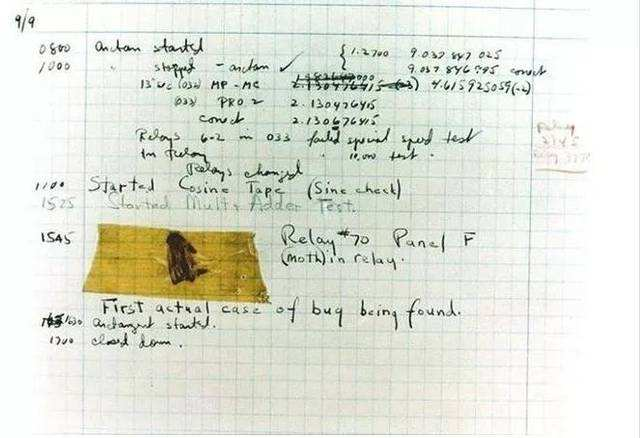 9/9
0800 arctan started { 1.2700 9.037 847 025
1000 " stopped - arctan ✓ 9.037 846 995 correct
13"uc (032) MP - MC 2.130476415 (-3) 4.615925059(-2)
(033) PRO 2 2.130476415
correct 2.130676415
Relays 6-2 in 033 failed special speed test
in relay " 10,000 test .
Relays changed
Relay
2145
1100 Started Cosine Tape (Sine check)
1525 Started Mult + Adder Test.
1545 Relay #70 Panel F
(moth) in relay.
First actual case of bug being found.
1630 arctangent started.
1700 closed down.